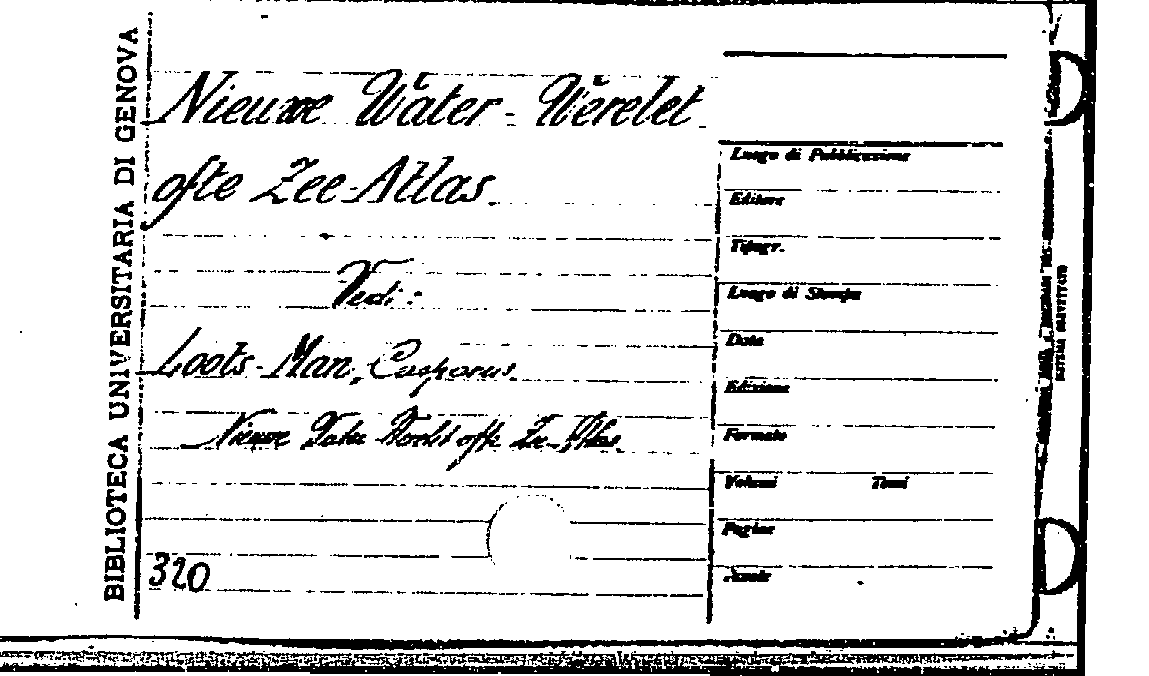 BIBLIOTECA UNIVERSITARIA DI GENOVA
Nieuwe Water-Werelet
ofte Zee-Atlas
Vedi:
Loots-Man, Casparus.
Nieuwe Water ofte Zee-Atlas.
320
Luogo di Pubblicazione
Editore
Tipogr.
Luogo di Stampa
Data
Edizione
Formato
Volumi Tomi
Pagine